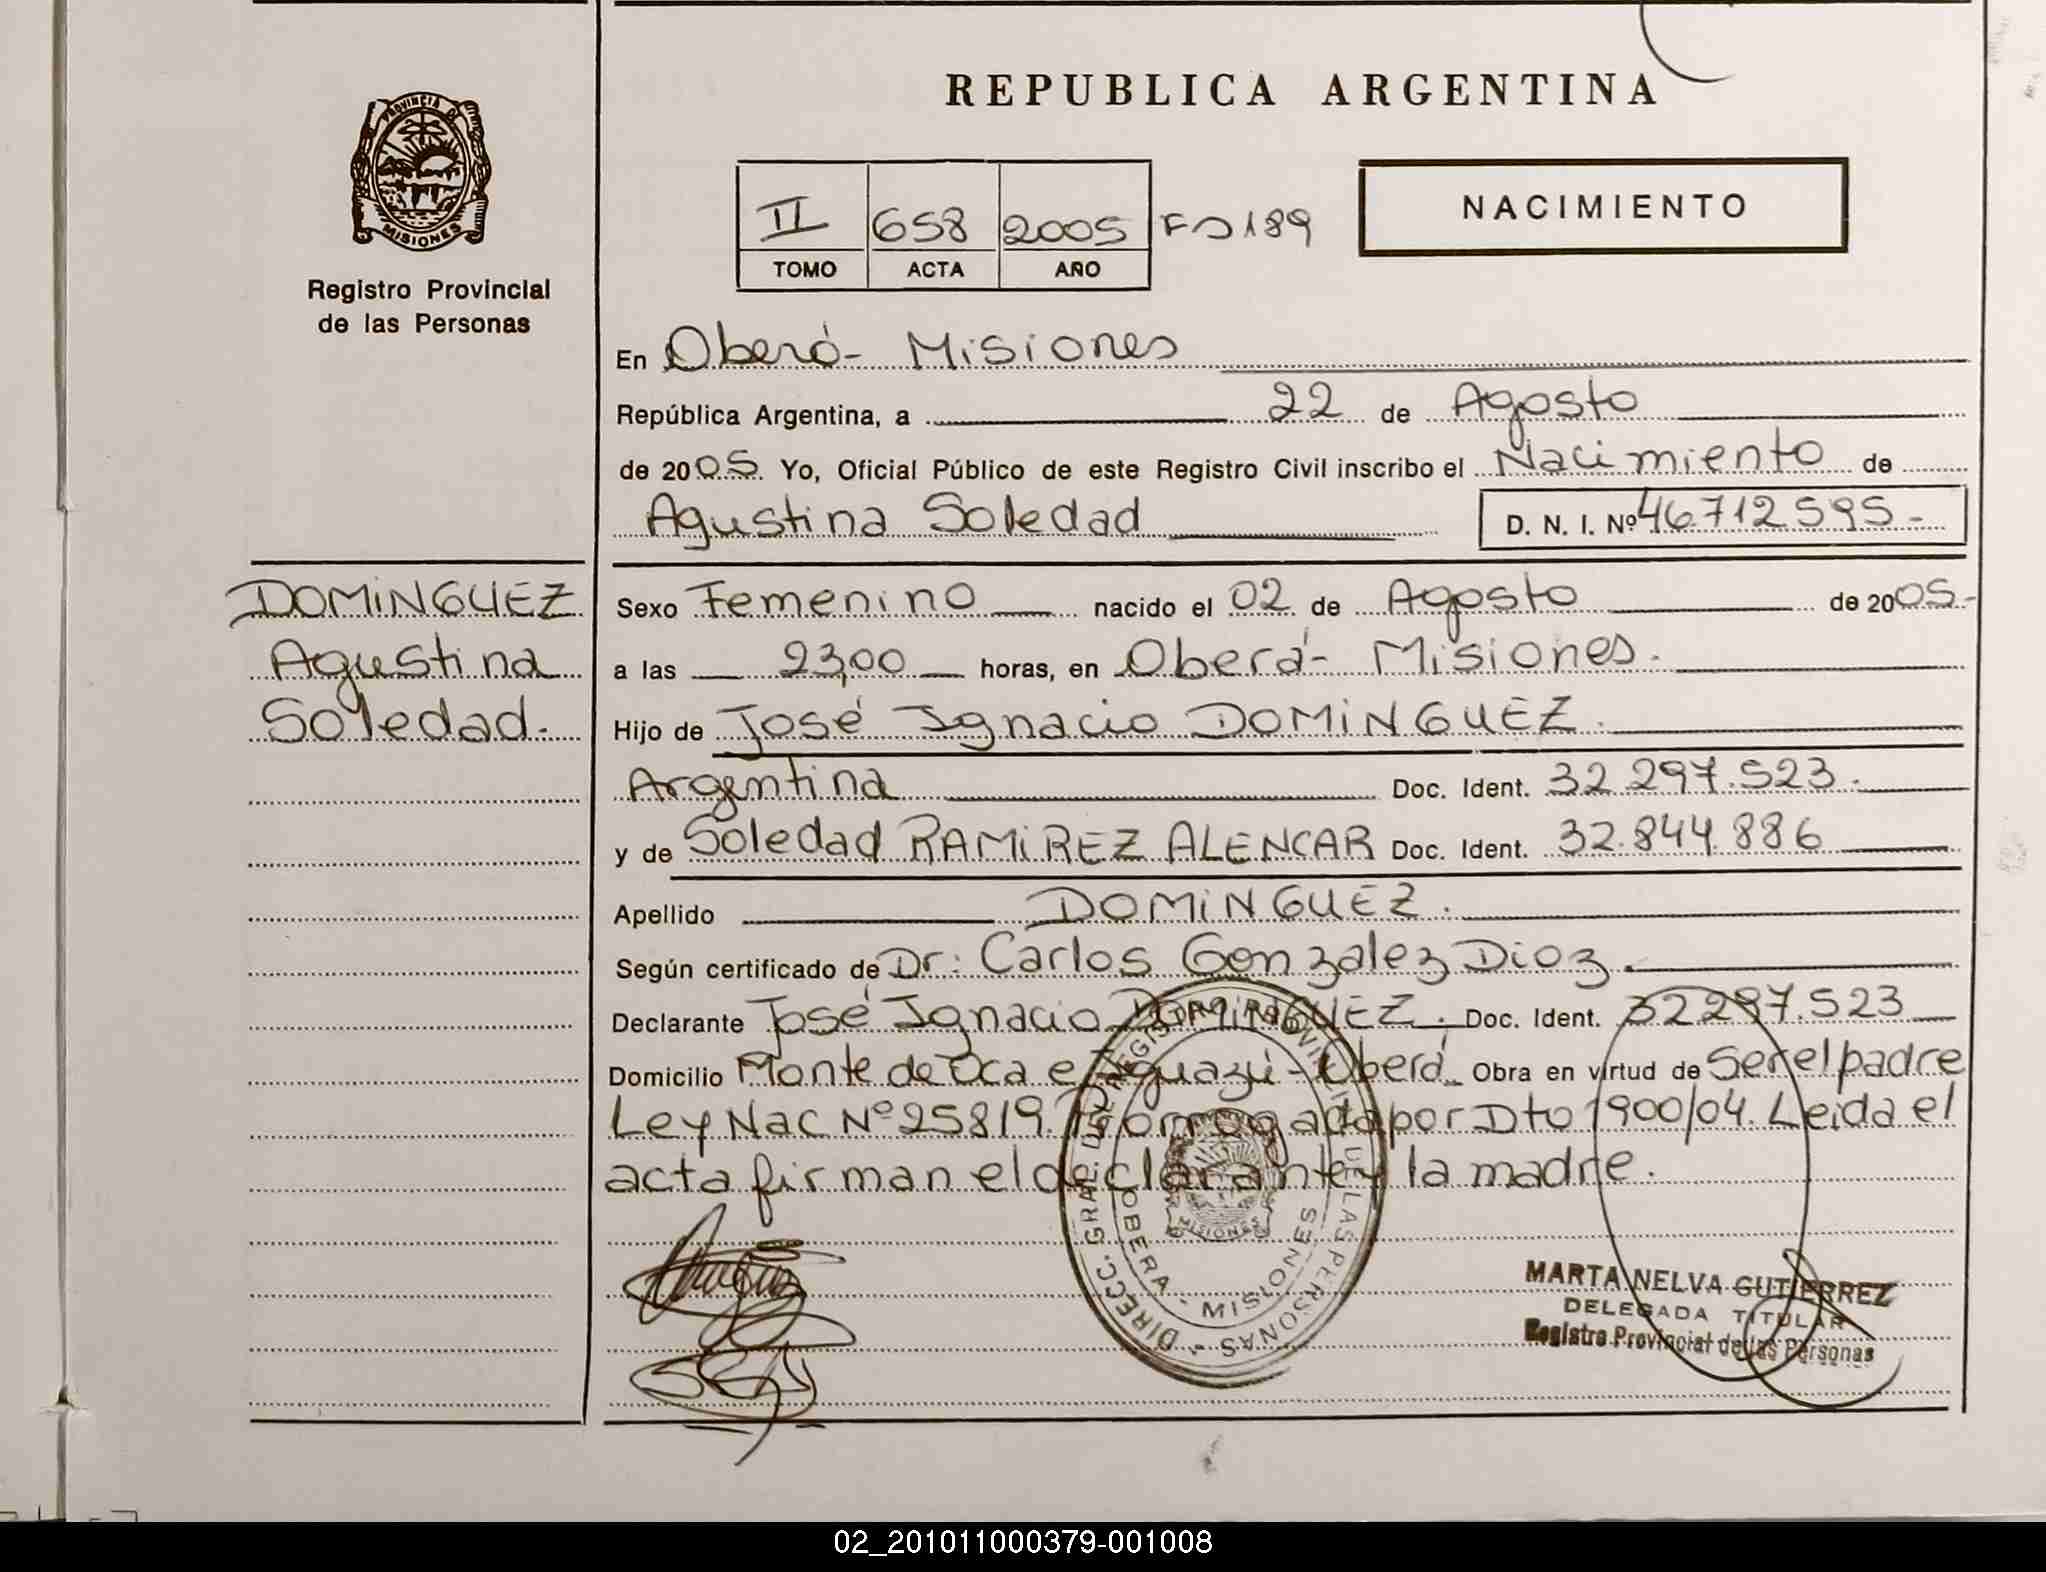 REPUBLICA ARGENTINA
PROVINCIA DE
MISIONES
Registro Provincial
de las Personas
II 658 2005 Fo 189
TOMO ACTA AÑO
NACIMIENTO
En Oberá- Misiones
República Argentina, a 22 de Agosto
de 2005. Yo, Oficial Público de este Registro Civil inscribo el Nacimiento de
Agustina Soledad D. N. I. Nº 46.712.595-
DOMINGUEZ
Agustina
Soledad.
Sexo Femenino nacido el 02 de Agosto de 2005-
a las 23,00 horas, en Oberá- Misiones.
Hijo de José Ignacio DOMINGUEZ.
Argentina Doc. Ident. 32.297.523.
y de Soledad RAMIREZ ALENCAR Doc. Ident. 32.844.886
Apellido DOMINGUEZ.
Según certificado de Dr: Carlos Gonzalez Dioz.
Declarante José Ignacio DOMINGUEZ. Doc. Ident. 32297.523
Domicilio Monte de Oca e Iguazú - Oberá. Obra en virtud de Ser el padre
Ley Nac Nº 25819. Prorrogada por Dto 1900/04. Leida el
acta firman el declarante y la madre.
DIRECC. GRAL. DEL REGISTRO PROVINCIAL DE LAS PERSONAS -
OBERA - MISIONES
MISIONES
MARTA NELVA GUTIERREZ
DELEGADA TITULAR
Registro Provincial de las Personas
02_201011000379-001008